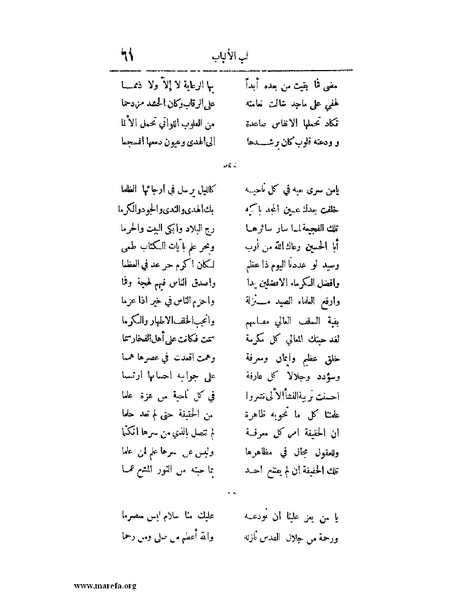 لب الألباب ٦١
مضى فما بقيت من بعده أبداً بها الرعاية لا إلاّ ولا ذمما
لهفي على ماجد شالت نعامته على الرقاب وكان الحشد مزدحما
تكاد تحملها الانفاس صاعدة من القلوب اللواتي تحمل الألما
وودعته قلوب كان يرشدها الى الهدى وعيون دمعها انسجما
يامن سرى نعيه في كل ناحية كالليل يرسل في ارجائها الظلما
خلفت بعدك عين المجد باكية بك الهدى والندى والجود والكرما
تلك الفجيعة لما سار سائرها رج البلاد وابكى البيت والحرما
أبا الحسين رعاك الله من أرب وبحر علم بآيات الكتاب طمى
وسيد لو عددنا اليوم ذا عظم لكان أكرم حر عد في العظما
وافضل الكرماء الافضلين يداً واصدق الناس فيهم لهجة وفما
وارفع العلماء الصيد منزلة واحزم الناس في خير اذا عزما
بقية السلف العالي مقامهم وانجب الخلف الاطهار والكرما
لقد حبتك المعالي كل مكرمة سمت فكانت على أهل الفخار سما
خلق عظيم وايمان ومعرفة وهمت اقعدت في عصرها همما
وسؤدد وجلالا كل عارفة على جوانبه احسانها ارتسما
احسنت تربية النشأ الألى نشروا في كل ناحية من عزة علما
علمتنا كل ما تحويه ظاهرة من الحقيقة حتى لم تعد حلما
ان الحقيقة امر كل معرفة لم تتصل بالذي من سرها انكتما
وللعقول مجال في مظاهرها وليس عن سرها علم لمن علما
تلك الحقيقة أن لم يفتتح احد بما حبته من النور المشع عمى
يا من يعز علينا أن نودعه عليك منا سلام ليس منصرما
ورحمة من جلال القدس نازلة والله أعظم من صلى ومن رحما
www.marefa.org